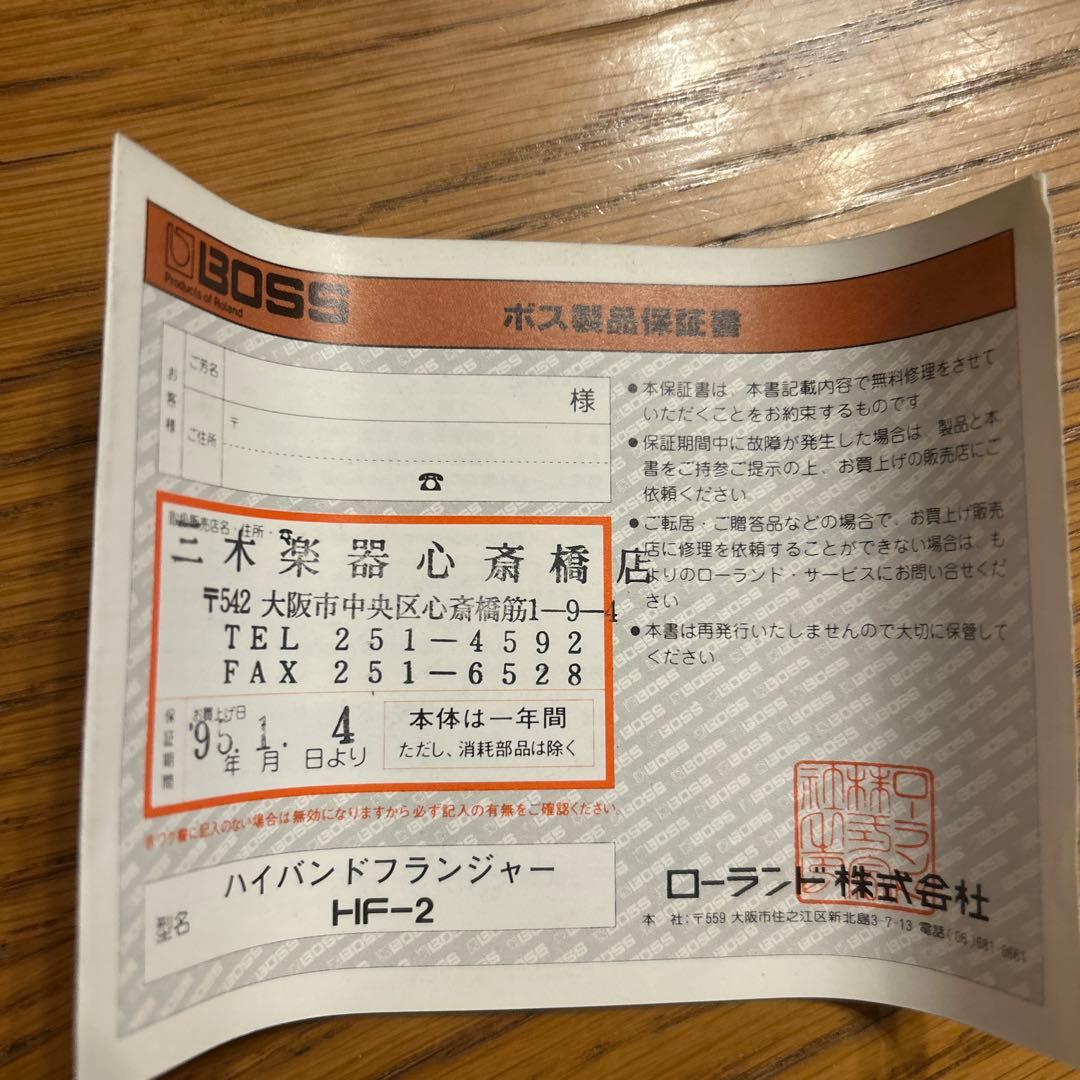 BOSS
Products of Roland
ボス製品保証書
お客様
ご芳名
様
ご住所
〒
☎
取扱販売店名・住所・☎
三木楽器心斎橋店
〒542 大阪市中央区心斎橋筋1－9－4
TEL 251－4592
FAX 251－6528
保証期間
お買上げ日
'95.1.4
年 月 日より
本体は一年間
ただし、消耗部品は除く
赤ワク欄に記入のない場合は無効になりますから必ず記入の有無をご確認ください。
型名
ハイバンドフランジャー
HF-2
●本保証書は、本書記載内容で無料修理をさせて
いただくことをお約束するものです
●保証期間中に故障が発生した場合は、製品と本
書をご持参ご提示の上、お買上げの販売店にご
依頼ください
●ご転居・ご贈答品などの場合で、お買上げ販売
店に修理を依頼することができない場合は、も
よりのローランド・サービスにお問い合せくだ
さい
●本書は再発行いたしませんので大切に保管して
ください
ローランド株式会社
本 社:〒559 大阪市住之江区新北島3-7-13 電話(06)681-9661